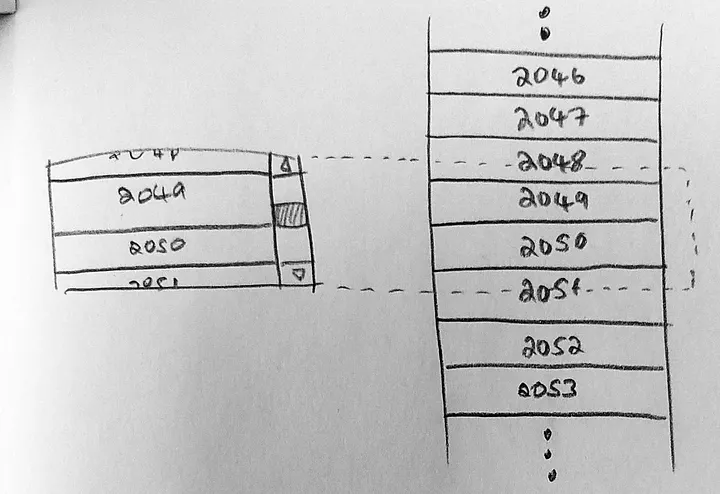 2048
2049
2050
2051
2046
2047
2048
2049
2050
2051
2052
2053